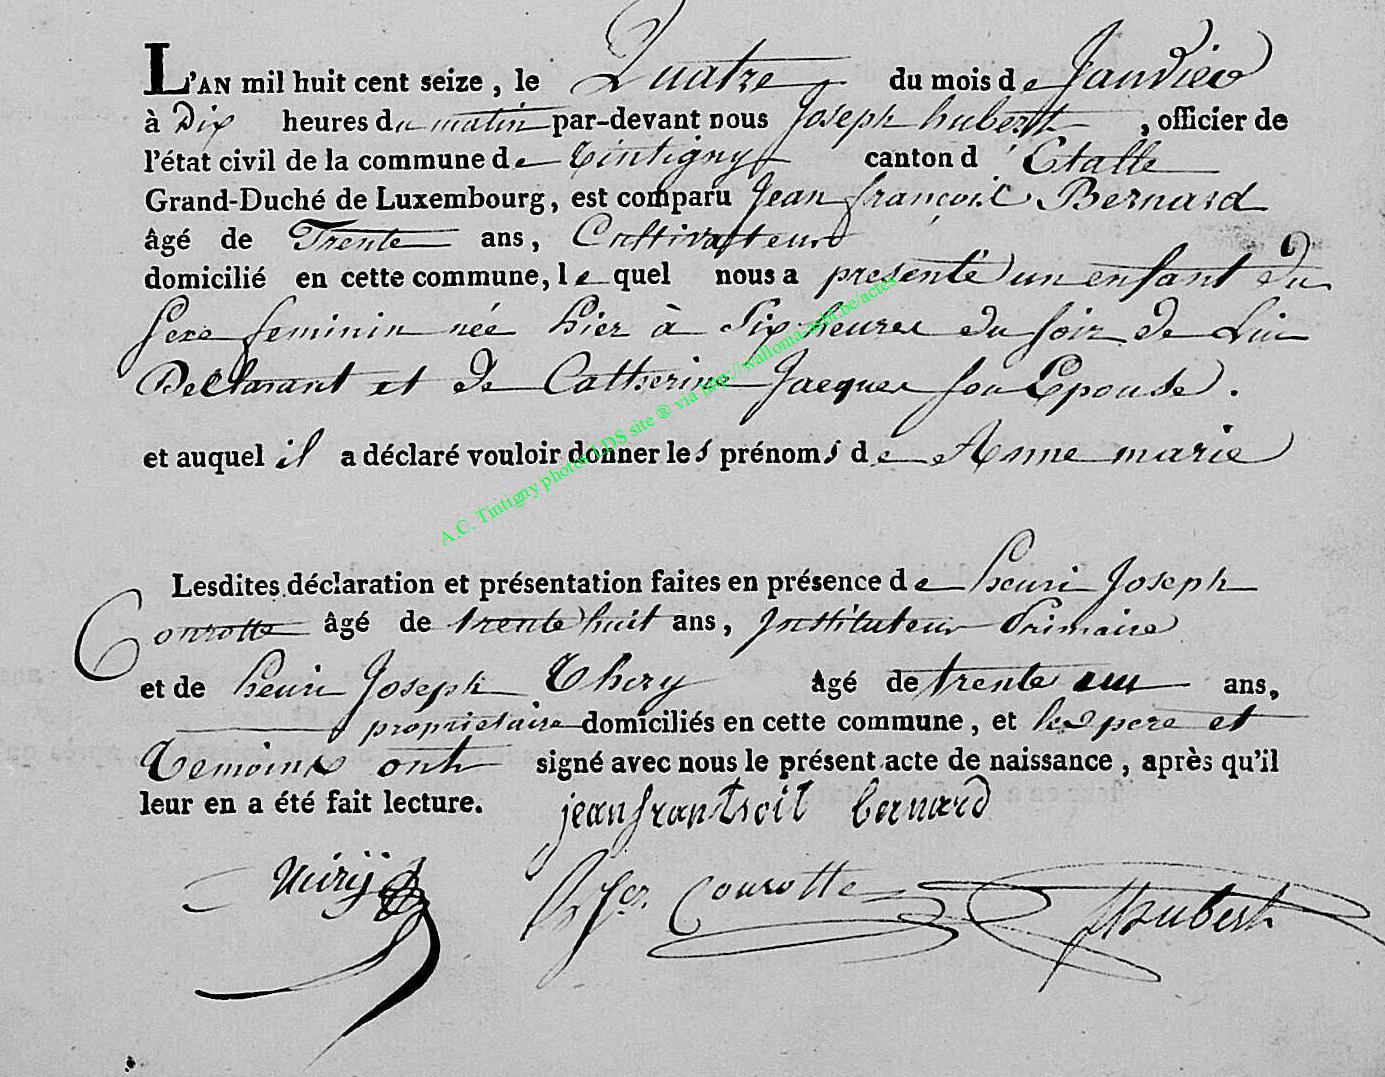 L'AN mil huit cent seize, le Quatre du mois de Janvier
à Dix heures du matin par-devant nous Joseph hubert, officier de
l'état civil de la commune de Tintigny canton d'Etalle
Grand-Duché de Luxembourg, est comparu Jean françois Bernard
âgé de Trente ans, Cultivateur
domicilié en cette commune, lequel nous a presenté un enfant du
sexe feminin née hier à Six heures du soir de Lui
Declarant et de Catherine Jacques son Epouse.
et auquel il a déclaré vouloir donner les prénoms de Anne marie
A.C. Tintigny photos LDS site ® via http://wallonia-asbl.be/actes
Lesdites déclaration et présentation faites en présence de henri Joseph
Courotte âgé de trente huit ans, Instituteur Primaire
et de henri Joseph Thiry âgé de trente un ans,
proprietaire domiciliés en cette commune, et les pere et
Temoins ont signé avec nous le présent acte de naissance, après qu'il
leur en a été fait lecture. jean frantsoit bernard
Courotte Hubert